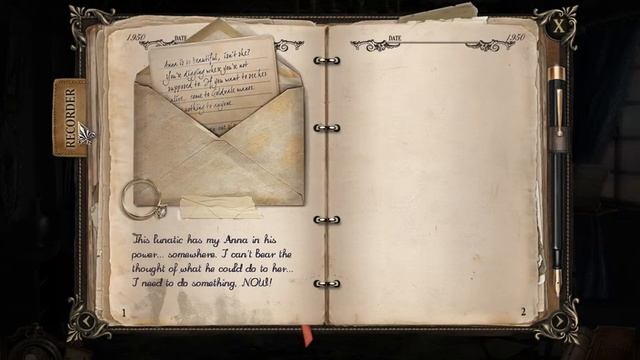 1950 DATE
Anna is so beautiful, isn't she?
You're digging where you're not
supposed to. If you want to see her
alive, come to Goldvale manor.
nothing to anyone.
RECORDER
This lunatic has my Anna in his
power... somewhere. I can't bear the
thought of what he could do to her...
I need to do something, NOW!
1
DATE 1950
2
X